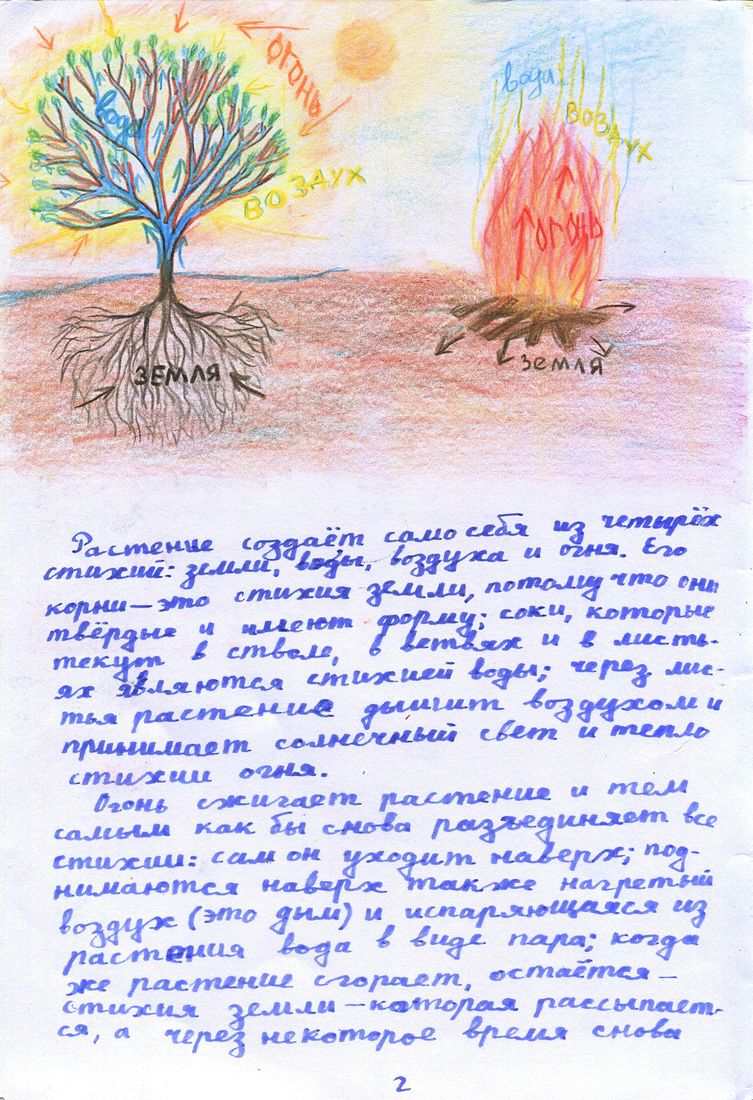 огонь
вода
воздух
земля
вода
воздух
огонь
земля
Растение создаёт само себя из четырёх
стихий: земли, воды, воздуха и огня. Его
корни — это стихия земли, потому что они
твёрдые и имеют форму; соки, которые
текут в стволе, в ветвях и в листь-
ях являются стихией воды; через лис-
тья растение дышит воздухом и
принимает солнечный свет и тепло
стихии огня.
Огонь сжигает растение и тем
самым как бы снова разъединяет все
стихии: сам он уходит наверх; под-
нимаются наверх также нагретый
воздух (это дым) и испаряющаяся из
растения вода в виде пара; когда
же растение сгорает, остаётся —
стихия земли — которая рассыпает-
ся, а через некоторое время снова
2